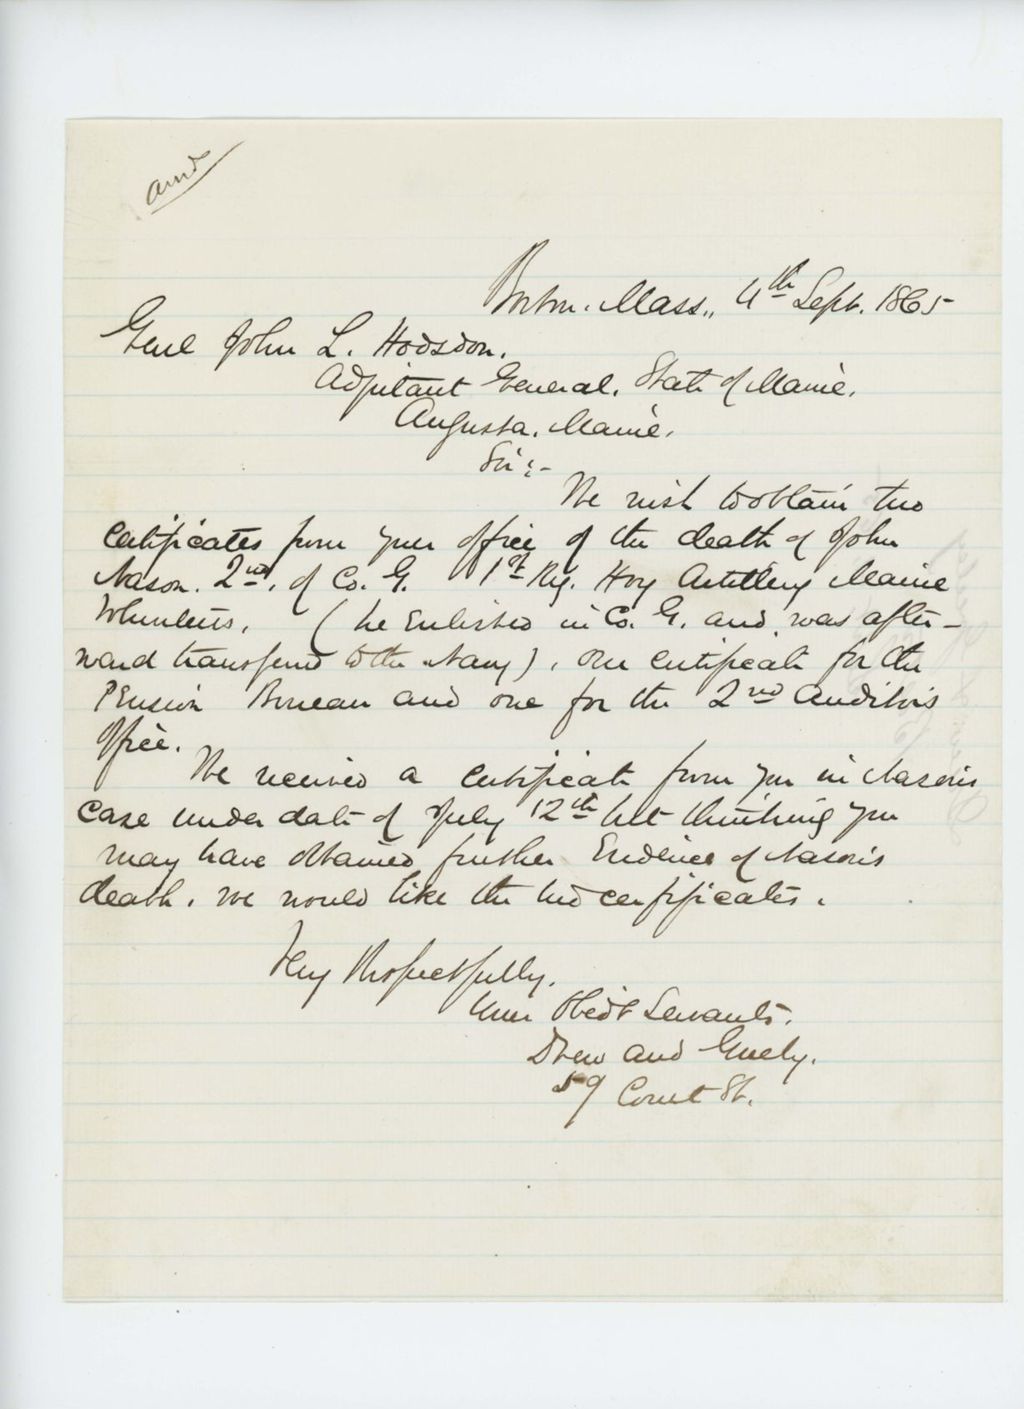 ansd
Boston. Mass., 4th Sept. 1865
Genl John L. Hodsdon.
Adjutant General. State of Maine.
Augusta. Maine.
Sir:-
We wish to obtain two
certificates from your office of the death of John
Nason. 2nd. of Co. G. 1st Rg. Hvy Artillery Maine
Volunteers. (he enlisted in Co. G. and was after-
ward transferred to the Navy), one certificate for the
Pension Bureau and one for the 2nd Auditor's
office.
We received a certificate from you in Nason's
case under date of July 12th but thinking you
may have obtained further Evidence of Nason's
death. we would like the two certificates.
Very Respectfully.
Your Obedt Servants.
Drew and
59 Court St.